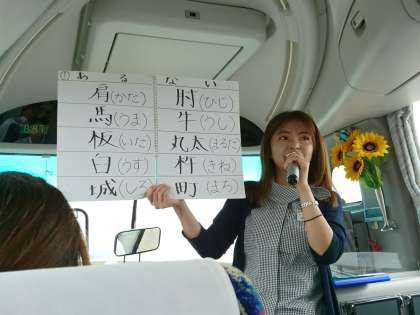 ① ある ない
肩(かた) 肘(ひじ)
馬(うま) 牛(うし)
板(いた) 丸太(まるた)
臼(うす) 杵(きね)
城(しろ) 町(まち)